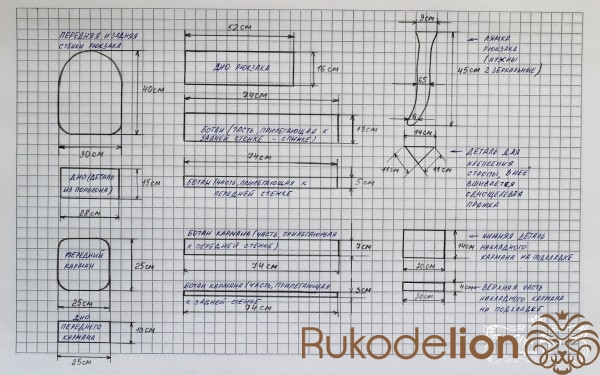 ПЕРЕДНЯЯ И ЗАДНЯЯ
СТЕНКИ РЮКЗАКА
40СМ
30СМ
ДНО (ДЕТАЛЬ
ИЗ ПОРОЛОНА)
15СМ
28 СМ
ПЕРЕДНИЙ
КАРМАН
25СМ
25СМ
ДНО
ПЕРЕДНЕГО
КАРМАНА
10СМ
25СМ
52СМ
ДНО РЮКЗАКА
16СМ
74СМ
БОТАН (ЧАСТЬ, ПРИЛЕГАЮЩАЯ К
ЗАДНЕЙ СТЕНКЕ - СПИНКЕ)
13СМ
74СМ
БОТАН (ЧАСТЬ, ПРИЛЕГАЮЩАЯ К
ПЕРЕДНЕЙ СТЕНКЕ
5СМ
БОТАН КАРМАНА (ЧАСТЬ, ПРИЛЕГАЮЩАЯ
К ПЕРЕДНЕЙ СТЕНКЕ)
7СМ
74СМ
БОТАН КАРМАНА (ЧАСТЬ, ПРИЛЕГАЮЩАЯ
К ЗАДНЕЙ СТЕНКЕ)
3СМ
74СМ
9СМ
ЛЯМКА
РЮКЗАКА
(НУЖНЫ
2 ЗЕРКАЛЬНЫЕ)
45СМ
14СМ
11СМ
11СМ
ДЕТАЛЬ ДЛЯ
КРЕПЛЕНИЯ
СТРОПЫ, В НЕЁ
ВШИВАЕТСЯ
ОДНОЩЕЛЕВАЯ
ПРЯЖКА
14СМ
20СМ
НИЖНЯЯ ДЕТАЛЬ
НАКЛАДНОГО
КАРМАНА НА ПОДКЛАДКЕ
4СМ
20СМ
ВЕРХНЯЯ ЧАСТЬ
НАКЛАДНОГО КАРМАНА
НА ПОДКЛАДКЕ
Rukodelion